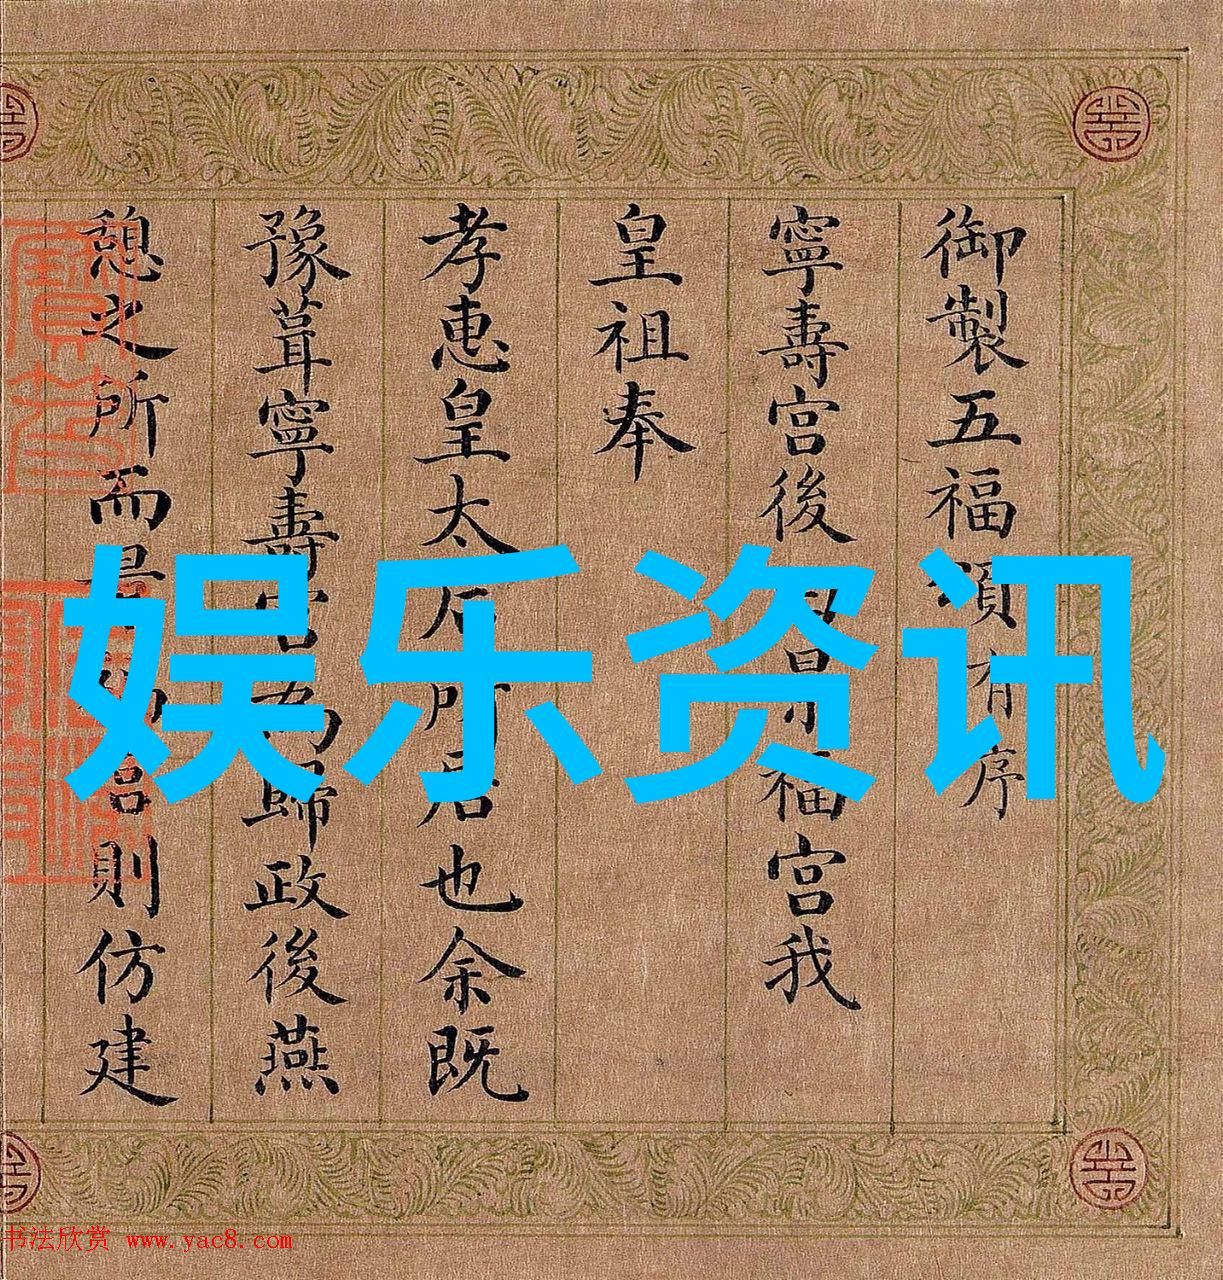 御製五福頌有序
寧壽宮後景福宮我
皇祖奉
孝惠皇太后所居也余既
豫葺寧壽宮為歸政後燕
憩之所而景福宮則仿建
娱乐资讯
书法欣赏 www.yac8.com